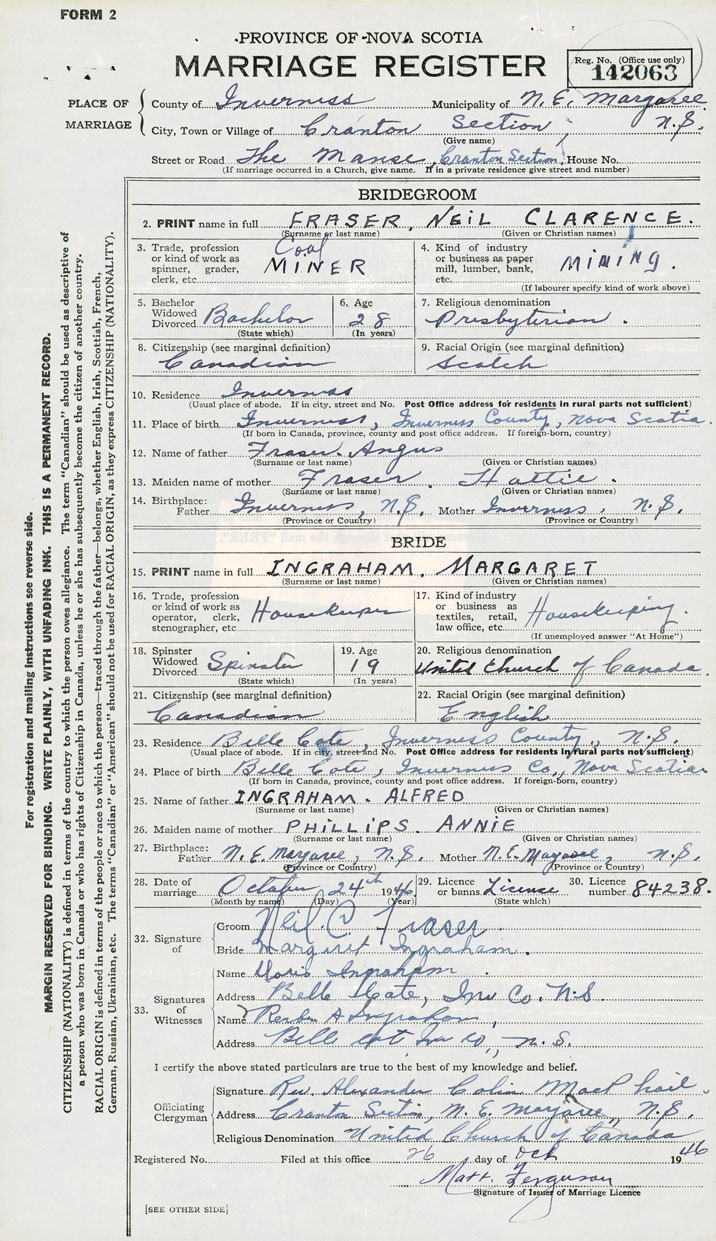 FORM 2
PROVINCE OF NOVA SCOTIA
MARRIAGE REGISTER
Reg. No. (Office use only)
142063
PLACE OF MARRIAGE
County of Inverness Municipality of N. E. Margaree
City, Town or Village of Cranton Section N.S.
(Give name)
Street or Road The Manse, Cranton Section, House No.
(If marriage occurred in a Church, give name. If in a private residence give street and number)
BRIDEGROOM
2. PRINT name in full FRASER, NEIL CLARENCE.
(Surname or last name) (Given or Christian names)
3. Trade, profession or kind of work as spinner, grader, clerk, etc. Coal MINER
4. Kind of industry or business as paper mill, lumber, bank, etc. MINING.
(If labourer specify kind of work above)
5. Bachelor Widowed Divorced Bachelor
(State which)
6. Age 28
(In years)
7. Religious denomination
Presbyterian.
8. Citizenship (see marginal definition)
Canadian
9. Racial Origin (see marginal definition)
Scotch
10. Residence Inverness
(Usual place of abode. If in city, street and No. Post Office address for residents in rural parts not sufficient)
11. Place of birth Inverness, Inverness County, Nova Scotia.
(If born in Canada, province, county and post office address. If foreign-born, country)
12. Name of father Fraser. Angus
(Surname or last name) (Given or Christian names)
13. Maiden name of mother Fraser. Hattie.
(Surname or last name) (Given or Christian names)
14. Birthplace: Father Inverness, N.S. Mother Inverness. N.S.
(Province or Country) (Province or Country)
BRIDE
15. PRINT name in full INGRAHAM. MARGARET
(Surname or last name) (Given or Christian names)
16. Trade, profession or kind of work as operator, clerk, stenographer, etc. Housekeeper
17. Kind of industry or business as textiles, retail, law office, etc. Housekeeping.
(If unemployed answer "At Home")
18. Spinster Widowed Divorced Spinster
(State which)
19. Age 19
(In years)
20. Religious denomination
United Church of Canada.
21. Citizenship (see marginal definition)
Canadian
22. Racial Origin (see marginal definition)
English
23. Residence Belle Cote, Inverness County, N.S.
(Usual place of abode. If in city, street and No. Post Office address for residents in rural parts not sufficient)
24. Place of birth Belle Cote, Inverness Co., Nova Scotia
(If born in Canada, province, county and post office address. If foreign-born, country)
25. Name of father INGRAHAM. ALFRED
(Surname or last name) (Given or Christian names)
26. Maiden name of mother PHILLIPS. ANNIE
(Surname or last name) (Given or Christian names)
27. Birthplace: Father N. E. Margaree, N.S. Mother N. E. Margaree, N.S.
(Province or Country) (Province or Country)
28. Date of marriage October 24th 1946
(Month by name) (Day) (Year)
29. Licence or banns License
(State which)
30. Licence number 84238.
32. Signature of
Groom Neil C. Fraser
Bride Margaret Ingraham.
33. Signatures of Witnesses
Name Ingraham.
Address Belle Cote, Inv Co. N.S
Name A Ingraham,
Address Belle Cot Inv Co., N.S.
I certify the above stated particulars are true to the best of my knowledge and belief.
Officiating Clergyman
Signature Rev. Alexander Colin MacPhail.
Address Cranton Section, N. E. Margaree, N.S.
Religious Denomination United Church of Canada
Registered No. Filed at this office 26 day of Oct 1946
Matt. Ferguson
Signature of Issuer of Marriage Licence
[SEE OTHER SIDE]
For registration and mailing instructions see reverse side.
MARGIN RESERVED FOR BINDING. WRITE PLAINLY, WITH UNFADING INK. THIS IS A PERMANENT RECORD.
CITIZENSHIP (NATIONALITY) is defined in terms of the country to which the person owes allegiance. The term "Canadian" should be used as descriptive of
a person who was born in Canada or who has rights of Citizenship in Canada, unless he or she has subsequently become the citizen of another country.
RACIAL ORIGIN is defined in terms of the people or race to which the person—traced through the father—belongs, whether English, Irish, Scottish, French,
German, Russian, Ukrainian, etc. The terms "Canadian" or "American" should not be used for RACIAL ORIGIN, as they express CITIZENSHIP (NATIONALITY).